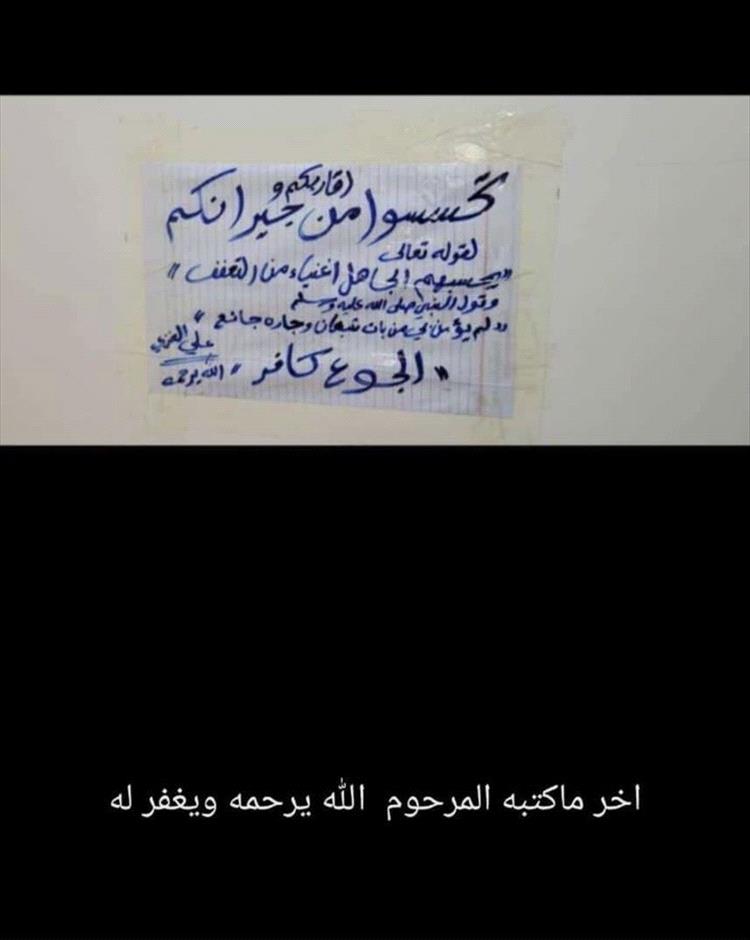 اقاربكم و
تحسسوا من جيرانكم
لقوله تعالى
"يحسبهم الجاهل اغنياء من التعفف"
وقول النبي صلى الله عليه وسلم
"لم يؤمن بي من بات شبعان وجاره جائع"
"الجوع كافر"
الله يرحمه
اخر ماكتبه المرحوم الله يرحمه ويغفر له